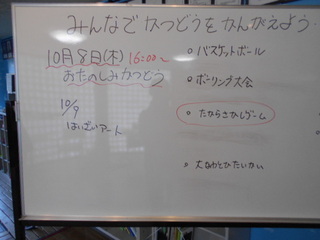 みんなで かつどうを かんがえよう
10月8日(木) 16:00〜
おたのしみかつどう
10/9
はいざいアート
○ バスケットボール
○ ボーリング大会
○ たからさがしゲーム
○ 大なわとびたいかい